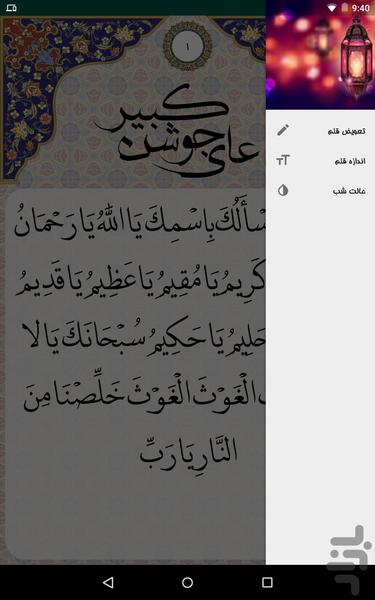 9:40
١
کبیر
عای جوشن
تعویض قلم
اندازه قلم
حالت شب
سْأَلُكَ بِاسْمِكَ يَا اللهُ يَا رَحْمَانُ
كَرِيمُ يَا مُقِيمُ يَا عَظِيمُ يَا قَدِيمُ
حَلِيمُ يَا حَكِيمُ سُبْحَانَكَ يَا لا
الْغَوْثَ الْغَوْثَ خَلِّصْنَا مِنَ
النَّارِ يَا رَبِّ
بازار